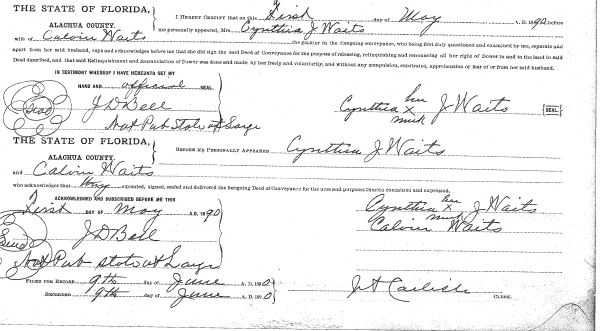 THE STATE OF FLORIDA,
ALACHUA COUNTY.
I HEREBY CERTIFY that on this First day of May A. D. 1890 before
me personally appeared, Mrs. Cynthia J Waits
wife of Calvin Waits the grantor in the foregoing conveyance, who being first duly questioned and examined by me, separate and
apart from her said husband, says and acknowledges before me that she did sign the said Deed of Conveyance for the purpose of releasing, relinquishing and renouncing all her right of Dower in and to the land in said
Deed described, and that said Relinquishment and renunciation of Dower was done and made by her freely and voluntarily, and without any compulsion, constraint, apprehension or fear of or from her said husband.
IN TESTIMONY WHEREOF I HAVE HEREUNTO SET MY
HAND AND official SEAL.
Seal
J D Bell
Not Pub State at Large
Cynthia her x mark J Waits [SEAL.]
THE STATE OF FLORIDA,
ALACHUA COUNTY.
BEFORE ME PERSONALLY APPEARED Cynthia J Waits
and Calvin Waits
who acknowledges that they executed, signed, sealed and delivered the foregoing Deed of Conveyance for the uses and purposes therein contained and expressed.
ACKNOWLEDGED AND SUBSCRIBED BEFORE ME THIS
First DAY OF May A. D. 1890
Cynthia her mark J Waits
Calvin Waits
Seal
J D Bell
Not Pub State at Large
FILED FOR RECORD 9th day of June A. D. 1890
RECORDED 9th day of June 1890
CLERK.